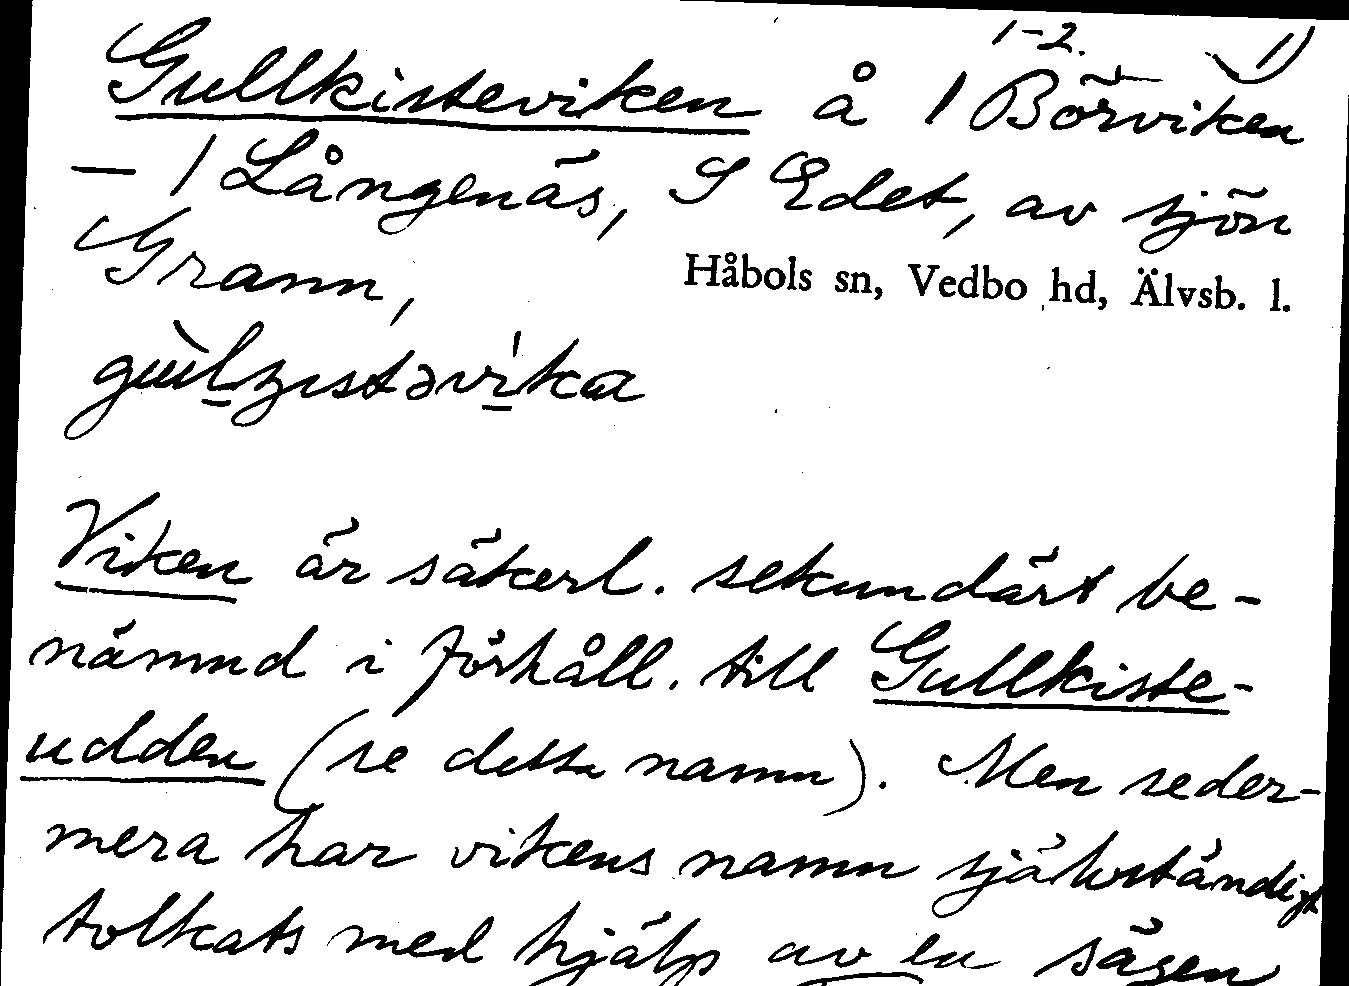 1-2. 1)
Gullkisteviken å 1 Börviken
— 1 Långenäs, S Edet, av sjön
Grann,
Håbols sn, Vedbo hd, Älvsb. l.
Viken är säkerl. sekundärt be-
nämnd i förhåll. till Gullkiste-
udden (se detta namn). Men seder-
mera har vikens namn självständigt
tolkats med hjälp av en sägen